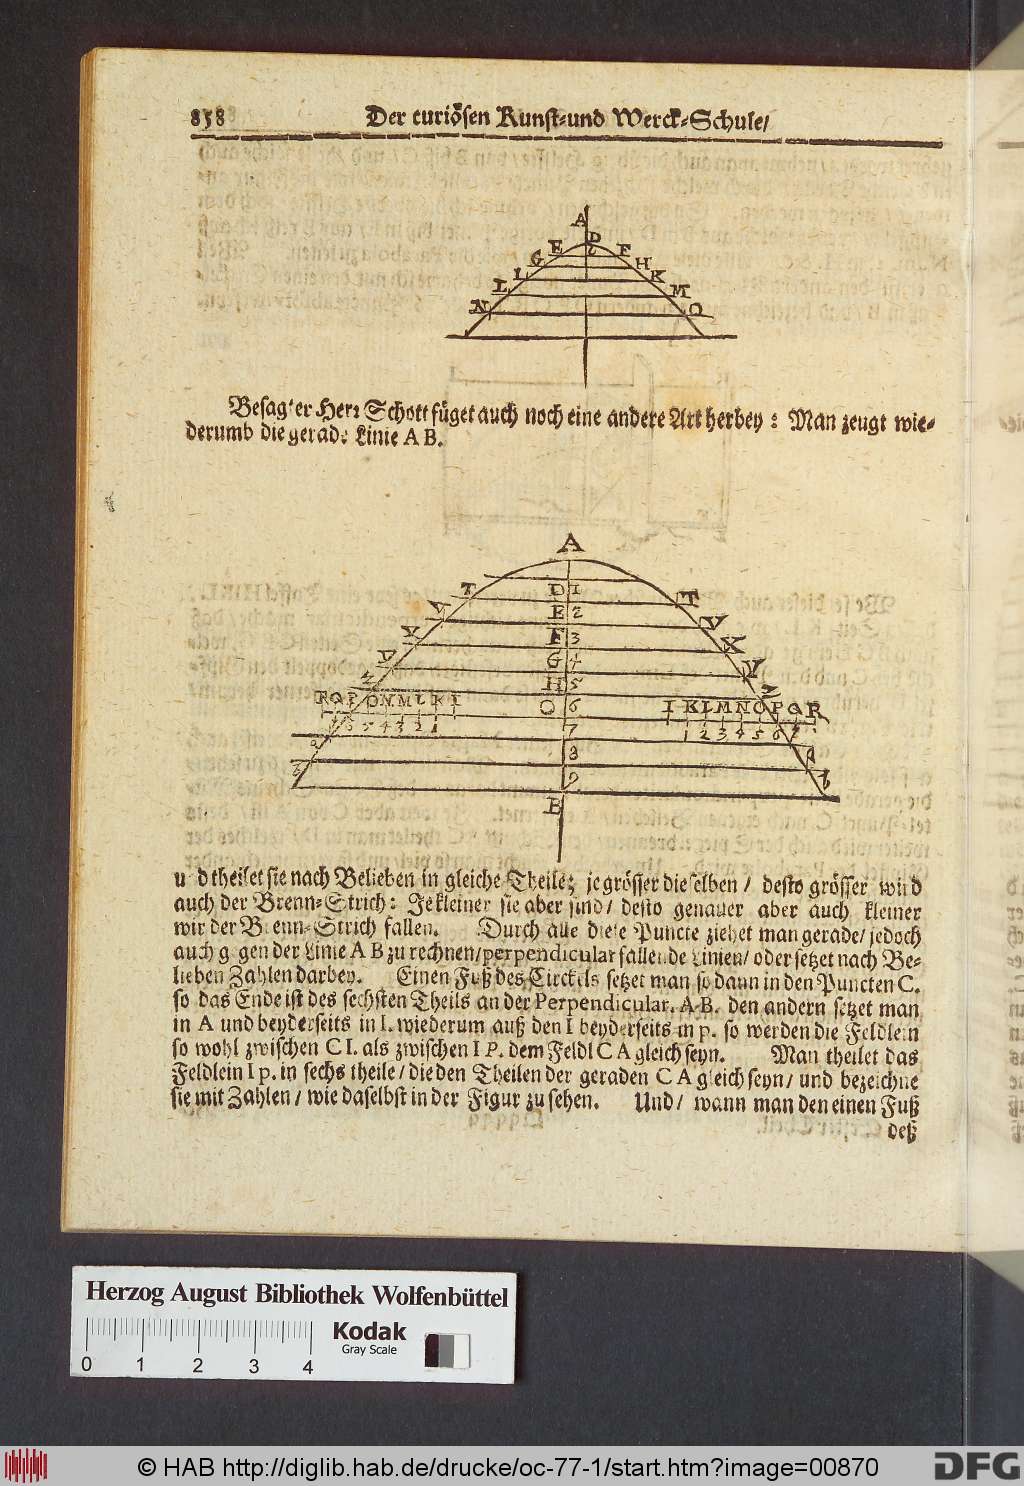 858 Der curiösen Kunst-und Werck-Schule/
A
D
E F
G H
I K
L M
N O
Besagter Herr Schott füget auch noch eine andere Art herbey: Man zeugt wie-
derumb die gerade Linie A B.
A
T D 1 T
V E 2 V
Y F 3 X
V G 4 Y
Z H 5 Z
R Q P O N M L K I O 6 I K L M N O P Q R
7 6 5 4 3 2 1 7 1 2 3 4 5 6 7
8
9
B
und theilet sie nach Belieben in gleiche Theile; je grösser dieselben / desto grösser wird
auch der Brenn-Strich: Je kleiner sie aber sind/ desto genauer aber auch kleiner
wir der Brenn-Strich fallen. Durch alle diese Puncte ziehet man gerade/ jedoch
auch gegen der Linie A B zu rechnen/ perpendicular fallende Linien/ oder setzet nach Be-
lieben Zahlen darbey. Einen Fuß des Circkels setzet man so dann in den Puncten C.
so das Ende ist des sechsten Theils an der Perpendicular. A.B. den andern setzet man
in A und beyderseits in I. wiederum auß den I beyderseits in p. so werden die Feldlein
so wohl zwischen C I. als zwischen I P. dem Feldl C A gleich seyn. Man theilet das
Feldlein I p. in sechs theile / die den Theilen der geraden C A gleich seyn/ und bezeichne
sie mit Zahlen / wie daselbst in der Figur zu sehen. Und/ wann man den einen Fuß
deß
Herzog August Bibliothek Wolfenbüttel
Kodak
Gray Scale
0 1 2 3 4
© HAB http://diglib.hab.de/drucke/oc-77-1/start.htm?image=00870
DFG